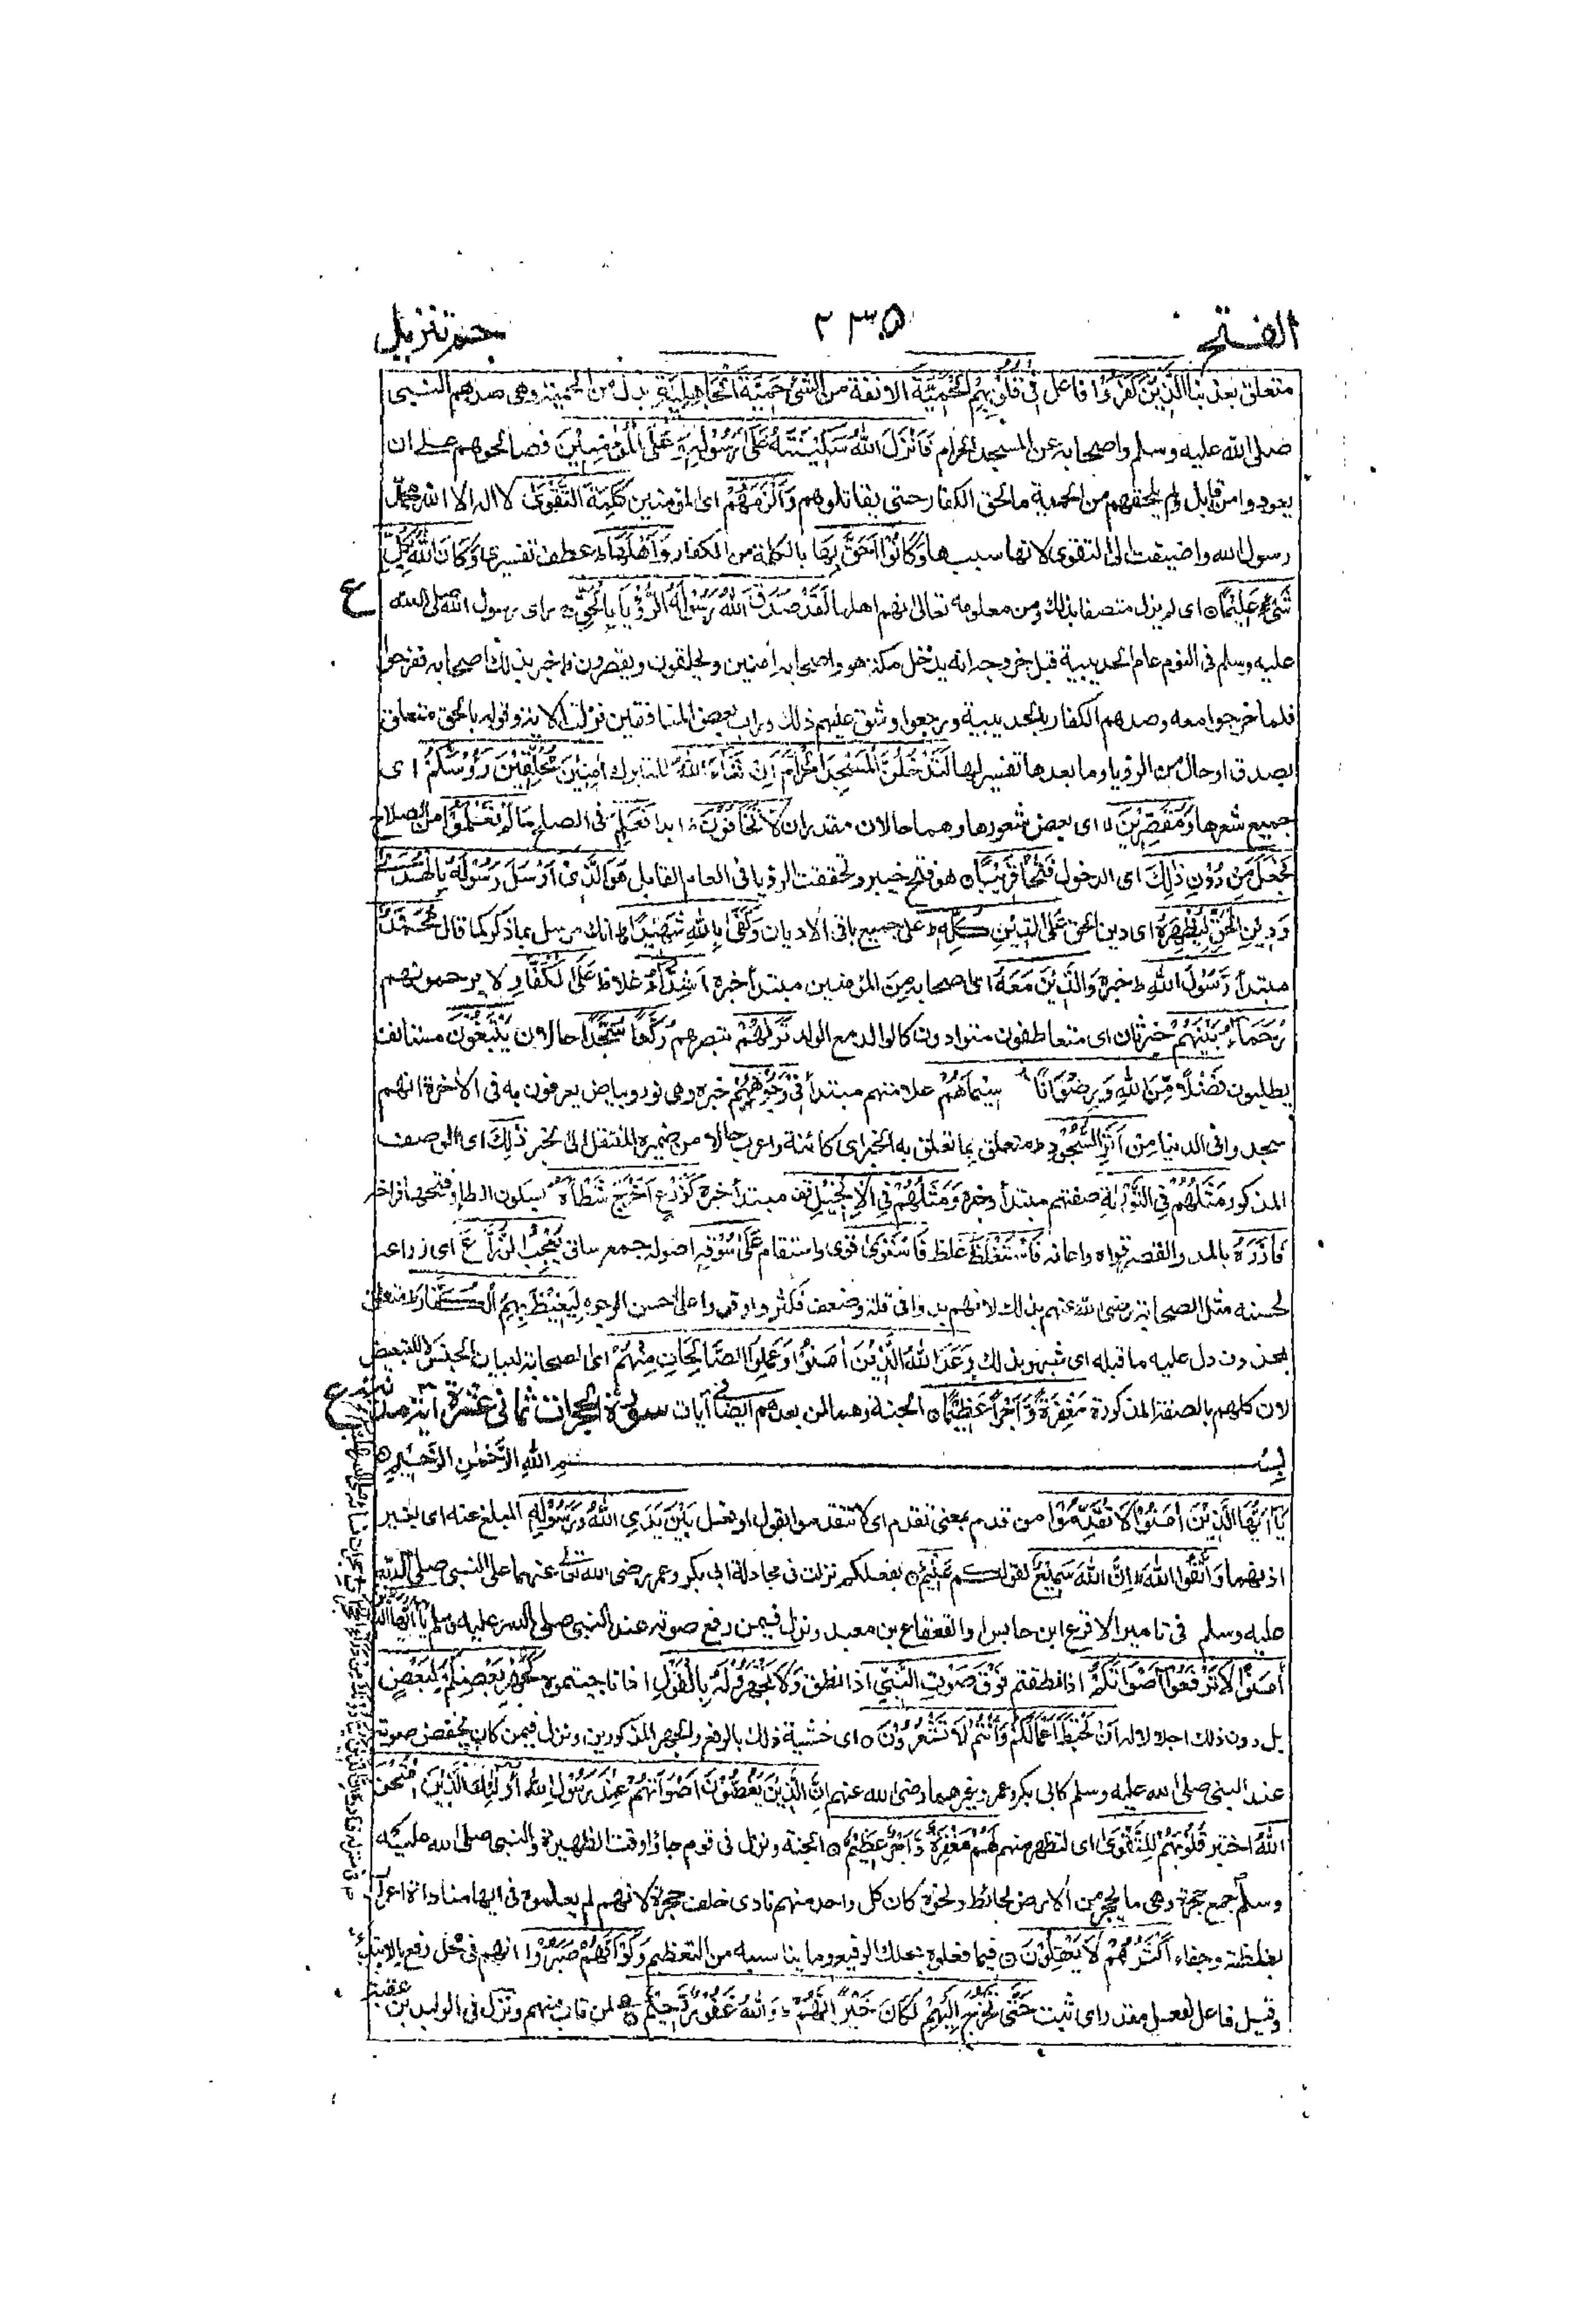 الفتح
٢٣٥
حٰم تنزيل
متعلق بعذبنا الَّذِيْنَ كَفَرُوْا فاعل فِيْ قُلُوْبِهِمُ الْحَمِيَّةَ الانفة من الشئ حَمِيَّةَ الْجَاهِلِيَّةِ بدل من الحمية وهى صدهم النبى
صلى الله عليه وسلم واصحابه عن المسجد الحرام فَاَنْزَلَ اللّٰهُ سَكِيْنَتَهٗ عَلٰى رَسُوْلِهٖ وَعَلَى الْمُؤْمِنِيْنَ فصالحوهم على ان
يعودوا من قابل ولم يلحقهم من الحمية مالحق الكفار حتى يقاتلوهم وَاَلْزَمَهُمْ اى المؤمنين كَلِمَةَ التَّقْوٰى لا اله الا الله محمد
رسول الله واضيفت الى التقوى لانها سببها وَكَانُوْا اَحَقَّ بِهَا بالكلمة من الكفار وَاَهْلَهَا ط عطف تفسيرى وَكَانَ اللّٰهُ بِكُلِّ
شَيْءٍ عَلِيْمًا ٥ اى لم يزل متصفا بذلك ومن معلومه تعالى انهم اهلها لَقَدْ صَدَقَ اللّٰهُ رَسُوْلَهُ الرُّؤْيَا بِالْحَقِّ ج راى رسول الله صلى الله
ع
عليه وسلم فى النوم عام الحديبية قبل خروجه انه يدخل مكة هو واصحابه اٰمنين ويحلقون ويقصرون فاخبر بذلك اصحابه ففرحوا
فلما خرجوا معه وصدهم الكفار بالحديبية ورجعوا وشق عليهم ذلك وراب بعض المنافقين نزلت الاية وقوله بالحق متعلق
بصدق او حال من الرؤيا وما بعدها تفسير لها لَتَدْخُلُنَّ الْمَسْجِدَ الْحَرَامَ اِنْ شَآءَ اللّٰهُ للتبرك اٰمِنِيْنَ مُحَلِّقِيْنَ رُءُوْسَكُمْ اى
جميع شعرها وَمُقَصِّرِيْنَ لا اى بعض شعورها وهما حالان مقدران لَا تَخَافُوْنَ ط ابدا فَعَلِمَ فى الصلح مَا لَمْ تَعْلَمُوْا من الصلاح
فَجَعَلَ مِنْ دُوْنِ ذٰلِكَ اى الدخول فَتْحًا قَرِيْبًا ٥ هو فتح خيبر وتحققت الرؤيا فى العام القابل هُوَ الَّذِيْ اَرْسَلَ رَسُوْلَهٗ بِالْهُدٰى
وَدِيْنِ الْحَقِّ لِيُظْهِرَهٗ اى دين الحق عَلَى الدِّيْنِ كُلِّهٖ ط على جميع باقى الاديان وَكَفٰى بِاللّٰهِ شَهِيْدًا ط انك مرسل بما ذكر كما قال مُحَمَّدٌ
مبتدأ رَّسُوْلُ اللّٰهِ ط خبره وَالَّذِيْنَ مَعَهٗ اى اصحابه من المؤمنين مبتدأ خبره اَشِدَّآءُ غلاظ عَلَى الْكُفَّارِ لا يرحمونهم
رُحَمَآءُ بَيْنَهُمْ خبر ثان اى متعاطفون متوادون كالوالد مع الولد تَرٰىهُمْ تبصرهم رُكَّعًا سُجَّدًا حالان يَّبْتَغُوْنَ مستانف
يطلبون فَضْلًا مِّنَ اللّٰهِ وَرِضْوَانًا سِيْمَاهُمْ علامتهم مبتدأ فِيْ وُجُوْهِهِمْ خبره وهى نور وبياض يعرفون به فى الاخرة انهم
سجدوا فى الدنيا مِنْ اَثَرِ السُّجُوْدِ ط متعلق بما تعلق به الخبر اى كائنة واعرب حالا من ضميره المنتقل الى الخبر ذٰلِكَ اى الوصف
المذكور مَثَلُهُمْ فِي التَّوْرٰىةِ صفتهم مبتدأ وخبره وَمَثَلُهُمْ فِي الْاِنْجِيْلِ قف مبتدأ خبره كَزَرْعٍ اَخْرَجَ شَطْـَٔهٗ بسكون الطاء وفتحها فراخه
فَاٰزَرَهٗ بالمد والقصر قواه واعانه فَاسْتَغْلَظَ غلظ فَاسْتَوٰى قوى واستقام عَلٰى سُوْقِهٖ اصوله جمع ساق يُعْجِبُ الزُّرَّاعَ اى زراعه
لحسنه مثل الصحابة رضى الله عنهم بذلك لانهم بدوا فى قلة وضعف فكثروا وقووا على احسن الوجوه لِيَغِيْظَ بِهِمُ الْكُفَّارَ ط متعلق
بمحذوف دل عليه ما قبله اى شبهوا بذلك وَعَدَ اللّٰهُ الَّذِيْنَ اٰمَنُوْا وَعَمِلُوا الصَّالِحَاتِ مِنْهُمْ اى الصحابة لبيان الجنس لا للتبعيض
لان كلهم بالصفة المذكورة مَغْفِرَةً وَّاَجْرًا عَظِيْمًا ٥ الجنة وهما لمن بعدهم ايضا فى آيات سورة الحجرات ثمانى عشرة اية مدنية
ع
بِسْمِ اللّٰهِ الرَّحْمٰنِ الرَّحِيْمِ ٥
يٰٓاَيُّهَا الَّذِيْنَ اٰمَنُوْا لَا تُقَدِّمُوْا من قدم بمعنى تقدم اى لا تتقدموا بقول او فعل بَيْنَ يَدَيِ اللّٰهِ وَرَسُوْلِهٖ المبلغ عنه اى بغير
اذنهما وَاتَّقُوا اللّٰهَ ط اِنَّ اللّٰهَ سَمِيْعٌ لقولكم عَلِيْمٌ ٥ بفعلكم نزلت فى مجادلة ابى بكر وعمر رضى الله تعالى عنهما على النبى صلى الله
عليه وسلم فى تامير الاقرع ابن حابس او القعقاع بن معبد ونزل فيمن رفع صوته عند النبى صلى الله عليه وسلم يٰٓاَيُّهَا الَّذِيْنَ
اٰمَنُوْا لَا تَرْفَعُوْا اَصْوَاتَكُمْ اذا نطقتم فَوْقَ صَوْتِ النَّبِيِّ اذا نطق وَلَا تَجْهَرُوْا لَهٗ بِالْقَوْلِ اذا ناجيتموه كَجَهْرِ بَعْضِكُمْ لِبَعْضٍ
بل دون ذلك اجلالا له اَنْ تَحْبَطَ اَعْمَالُكُمْ وَاَنْتُمْ لَا تَشْعُرُوْنَ ٥ اى خشية ذلك بالرفع والجهر المذكورين ونزل فيمن كان يخفض صوته
عند النبى صلى الله عليه وسلم كابى بكر وعمر وغيرهما رضى الله عنهم اِنَّ الَّذِيْنَ يَغُضُّوْنَ اَصْوَاتَهُمْ عِنْدَ رَسُوْلِ اللّٰهِ اُولٰٓئِكَ الَّذِيْنَ امْتَحَنَ
اللّٰهُ اختبر قُلُوْبَهُمْ لِلتَّقْوٰى اى لتظهر منهم لَهُمْ مَّغْفِرَةٌ وَّاَجْرٌ عَظِيْمٌ ٥ الجنة ونزل فى قوم جاؤا وقت الظهيرة والنبى صلى الله عليه
وسلم جمع حجرة وهى ما يحجر من الارض لحائط ونحوه كان كل واحد منهم نادى خلف حجرة لانهم لم يعلموه فى ايها مناداة الاعراب
بغلظة وجفاء اَكْثَرُهُمْ لَا يَعْقِلُوْنَ ٥ فيما فعلوه بمحلك الرفيع وما يناسبه من التعظيم وَلَوْ اَنَّهُمْ صَبَرُوْا انهم فى محل رفع بالابتداء
وقيل فاعل لفعل مقدر اى ثبت حَتّٰى تَخْرُجَ اِلَيْهِمْ لَكَانَ خَيْرًا لَّهُمْ ط وَاللّٰهُ غَفُوْرٌ رَّحِيْمٌ ٥ لمن تاب منهم ونزل فى الوليد بن عقبة